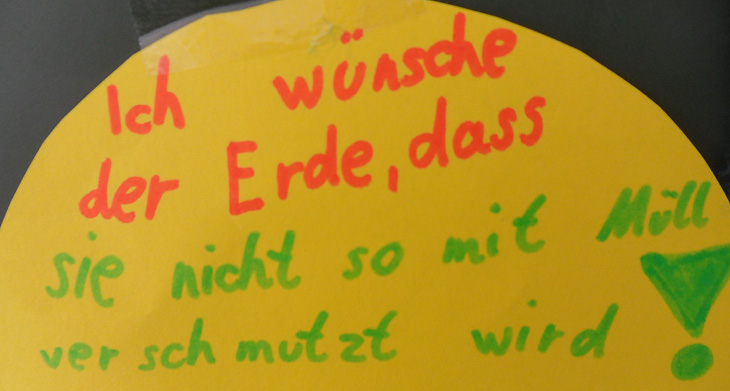 Ich wünsche
der Erde, dass
sie nicht so mit Müll
verschmutzt wird!